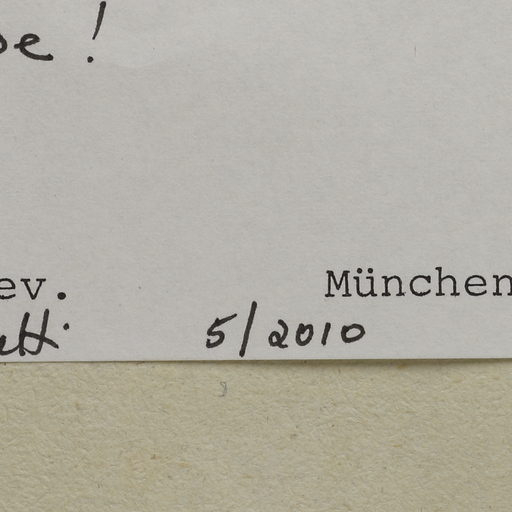 !
ev. München
5/2010